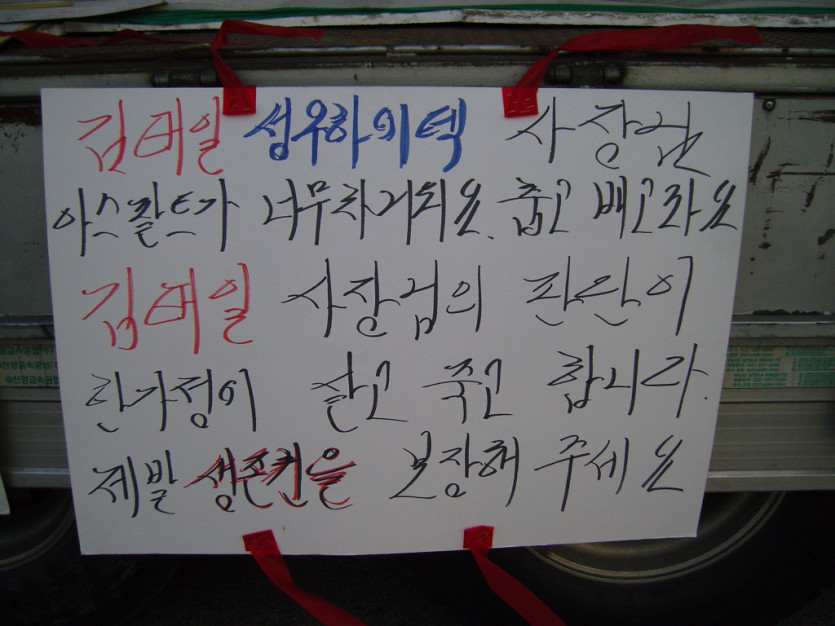 김태일 성우하이텍 사장님
아스팔트가 너무차거워요. 춥고 배고파요
김태일 사장님의 판단이
한가정이 살고 죽고 합니다.
제발 생존권을 보장해 주세요